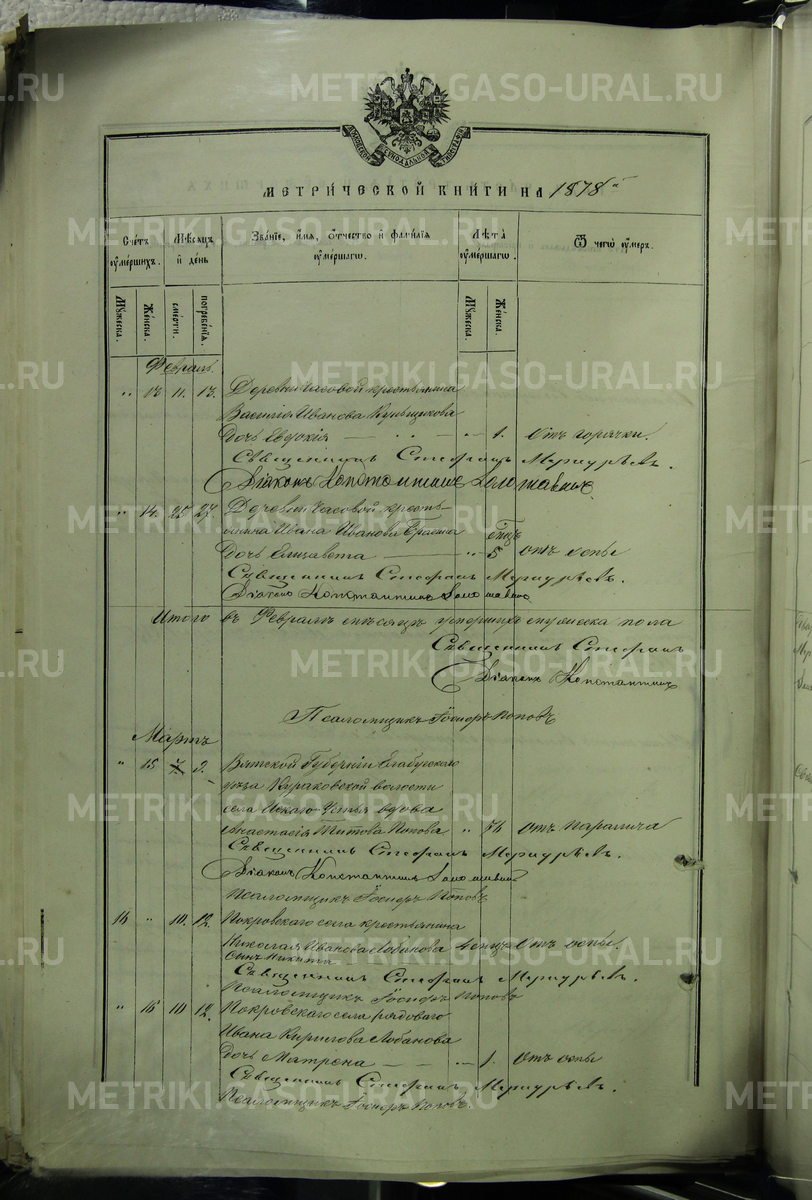 МЕТРИЧЕСКОЙ КНИГИ НА 1878
Счетъ умершихъ.
Мѣсяцъ и день
Званіе, имя, отчество и фамилія умершаго.
Лѣта умершаго.
Ѿ чего умеръ.
Мужеска.
Женска.
смерти.
погребенія.
Мужеска.
Женска.
Февраль
" 13 11. 13. Деревни Часовой крестьянина
Василія Иванова
Дочь Евдокія — " 1. Отъ горячки.
Священникъ Стефанъ Меркурьевъ.
Діаконъ Константинъ
" 14 25 27 Деревни Часовой кресть-
янина Ивана Иванова
Дочь Елизавета — " 5 отъ оспы
Священникъ Стефанъ Меркурьевъ.
Діаконъ Константинъ
Итого въ Февралѣ мѣсяцѣ умершихъ мужеска пола
Священникъ Стефанъ
Діаконъ Константинъ
Псаломщикъ Поповъ
Мартъ
" 15 7. 9. Вятской Губерніи Елабужскаго
уѣзда Кураковской волости
села Устья вдова
Анастасія Титова Попова " 74 отъ паралича
Священникъ Стефанъ Меркурьевъ.
Діаконъ Константинъ
Псаломщикъ Поповъ
16 " 10. 12. Покровскаго села крестьянина
Николая Иванова Лобанова Отъ оспы.
сынъ Никита
Священникъ Стефанъ Меркурьевъ.
Псаломщикъ Поповъ
" 16 10 12. Покровскаго села рядоваго
Ивана Кирилова Лобанова
Дочь Матрена — " 1. Отъ оспы
Священникъ Стефанъ Меркурьевъ.
Псаломщикъ Поповъ.
METRIKI.GASO-URAL.RU